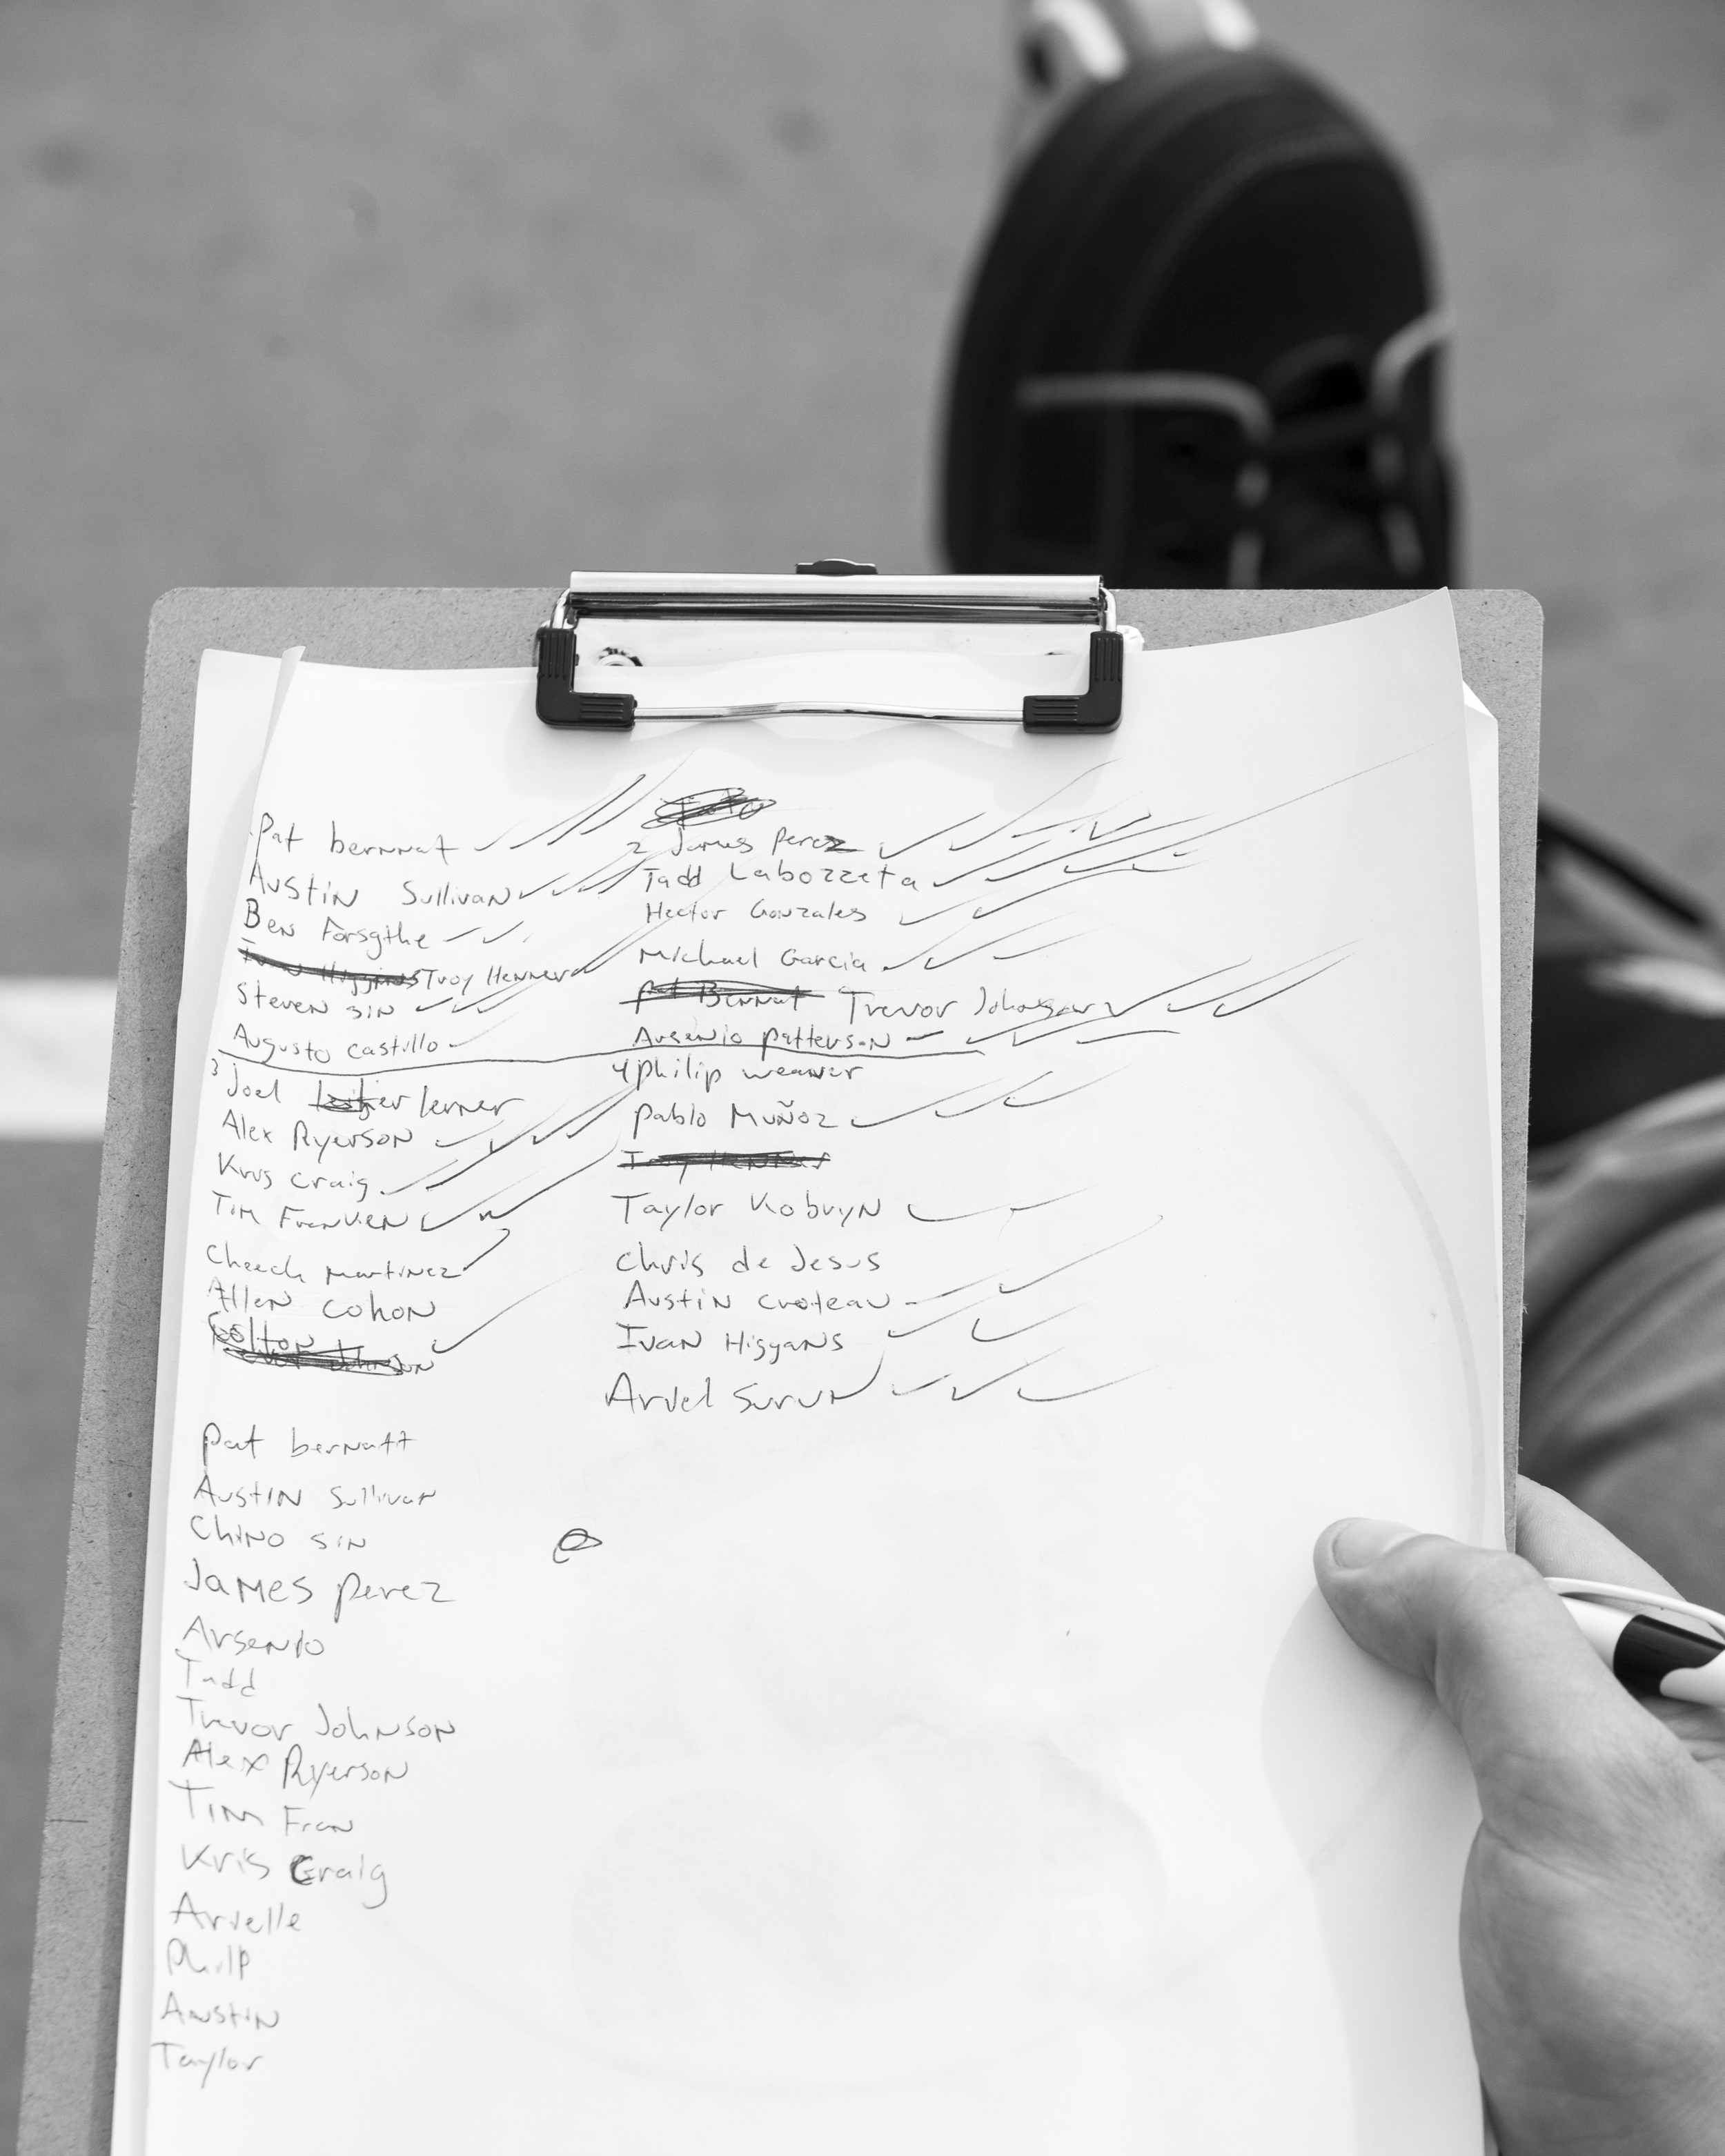 Pat bernnat
Austin Sullivan
Ben Forsythe
Ivan Higgins Troy Henner
Steven Sin
Augusto Castillo
3 Joel lerner
Alex Ryerson
Krus Craig
Tim Franken
Cheech Martinez
Allen Cohon
Colton
2 James Perez
Tadd Labozzeta
Hector Gonzales
Michael Garcia
Pat Bennat Trevor Johnson
Arsenio Patterson
4 Philip weaver
Pablo Muñoz
Taylor Kobryn
Chris de Jesus
Austin croteau
Ivan Higgans
Arvel Surun
Pat bernatt
Austin Sullivan
Chino Sin
James Perez
Arsenio
Tadd
Trevor Johnson
Alex Ryerson
Tim Fran
Kris Craig
Arvelle
Philp
Austin
Taylor